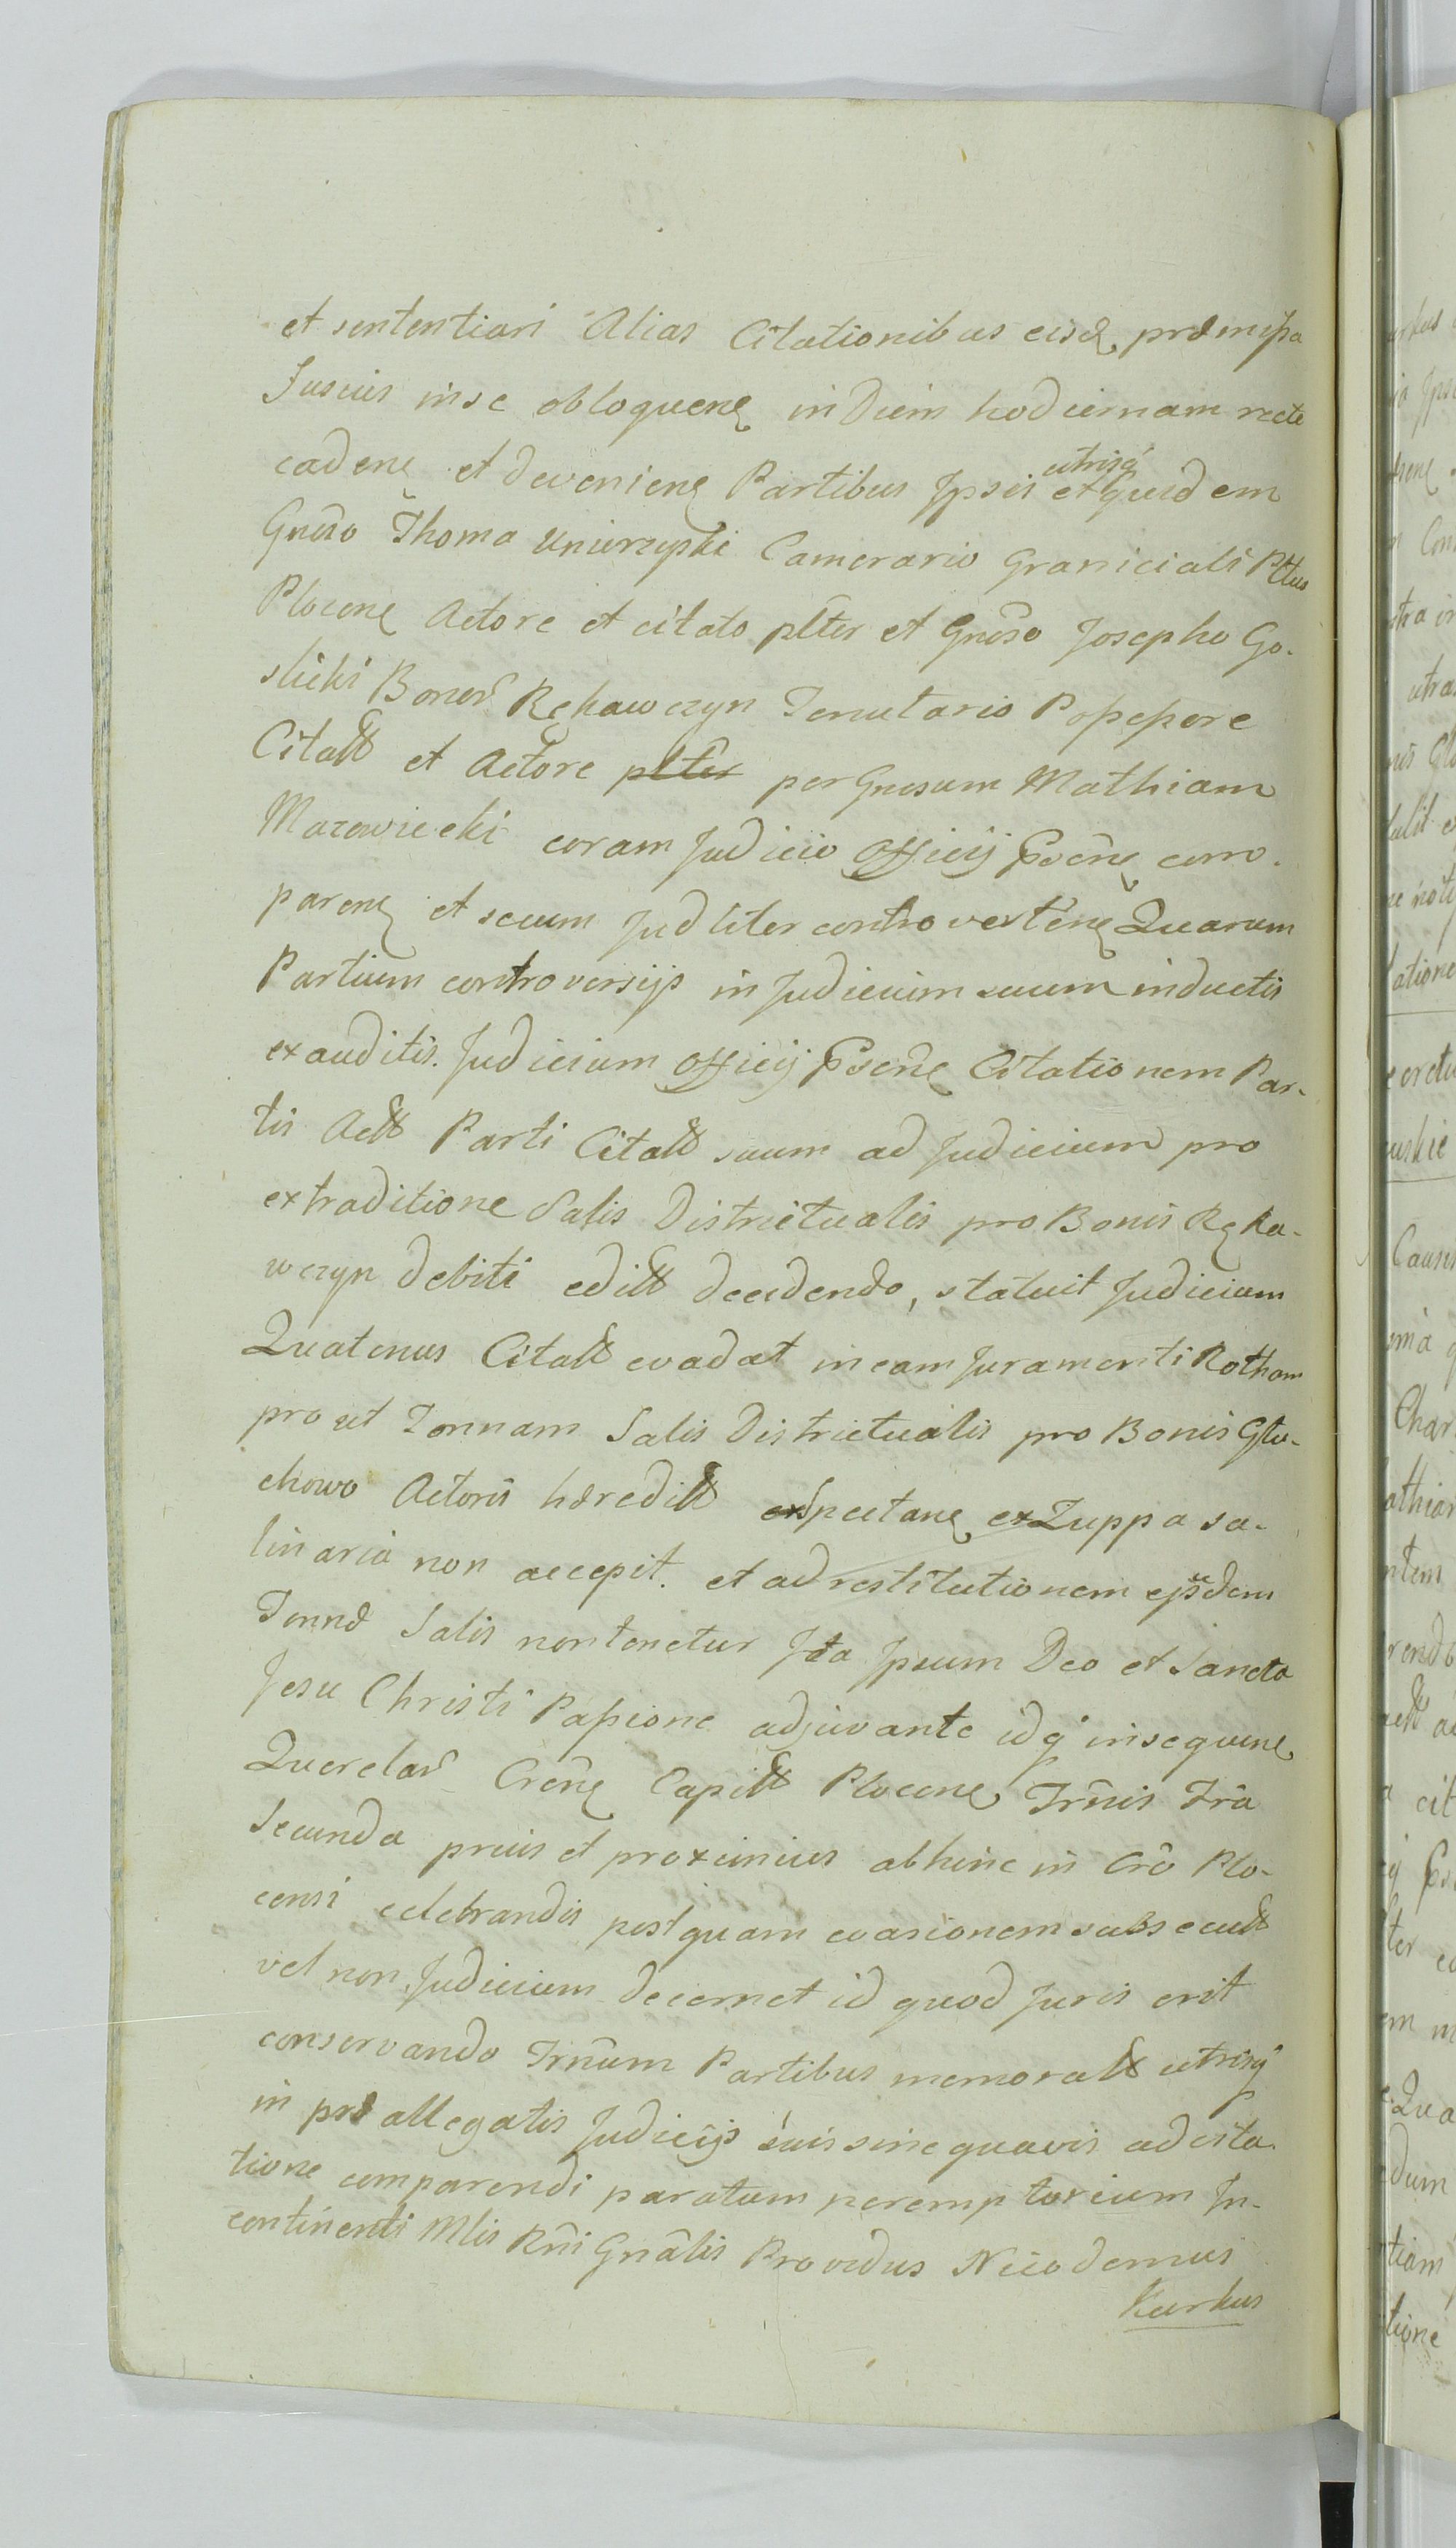 et sententiari Alias Citationibus eisdę præmissa
Suscius in se obloquenę in Diem hodiernam recte
cadenę et devenienę Partibus Ipsis utrisq́ et quidem
Gnëro Thoma Unierzyski Camerario Graniciali Pttus
Plocenę Actore et citato pltër et Gnoso Josepho Go-
slicki Bonor̃ Rękawczyn Tenutario Possessore
Citatt et Actore plter per Gnosum Mathiam
Mazowiecki coram Judicio Officij Psëne com-
parenę et secum Judliter controvertenę Quarum
Partium controversijs in Judicium suum inductis
exauditis. Judicium Officij Psëne Citationem Par-
tis Actt Parti Citatt suum ad Judicium pro
extraditione Salis Districtualis pro Bonis Ręka-
wczyn debiti editt decidendo, statuit Judicium
Quatenus Citatt evadat in eam Juramenti Rotham
pro ut Tonnam Salis Districtualis pro Bonis Glu-
chowo Actoris hæreditt exspectanę ex Zuppa sa-
linaria non accepit. et ad restitutionem ejusdem
Tonnæ Salis non tenetur Ita Ipsum Deo et Sancta
Jesu Christi Passione adjuvante idq́ insequenę
Querelar̃ Crënę Capitt Plocenę Trm̃is Fr̃ia
Secunda prius et proximius abhinc in Crõ Plo-
censi celebrandis postquam evasionem subsecutt
vel non, Judicium decernet id quod Juris erit
conservando Trm̃um Partibus memoratt utrisq́
in præallegatis Judicijs suis sine quavis adcita-
tione comparendi paratum peremptorium In-
continenti Mlis Rñi Gnãlis Providus Nicodemus
Kurkus